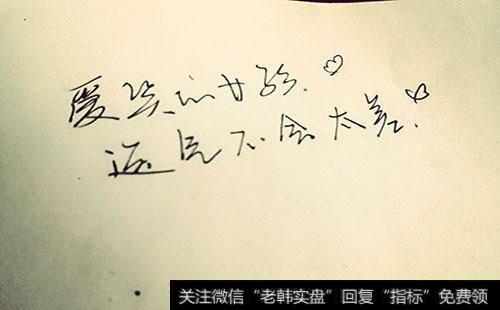 爱笑的女孩.♡
运气不会太差.♡
关注微信“老韩实盘”回复“指标”免费领